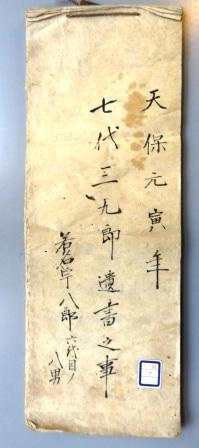 天保元寅年
七代三九郎遺書之事
八郎六代目ノ
八男